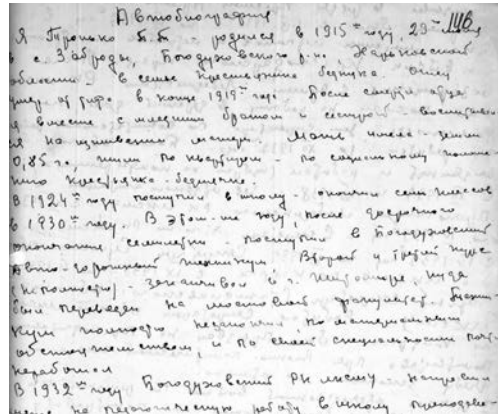 Автобиография
146
Я Тронько П.Т. родился в 1915 году, 29 июня
в с. Заброды, Богодуховского р-на Харьковской
области в семье крестьянина бедняка. Отец
умер от тифа в конце 1919 года. После смерти отца
я вместе с младшим братом и сестрой - воспитывал
ся на иждивении матери. Мать имела - земли
0,85 га, по социальному положе-
нию крестьянка-беднячка.
В 1924 году поступил в школу - окончил семь классов
в 1930 году. В этом-же году, после досрочного
окончания семилетки - поступил в Богодуховский
авто-дорожный техникум. Второй и третий курс
(неполностью) - заканчивал в г. куда
был переведен на мостовой факультет. Техни-
кум полностью незакончил по материальным
обстоятельствам, и по своей специальности почти
неработал
В 1932 году Богодуховский РК лксму направил
меня на педагогическую работу в школу